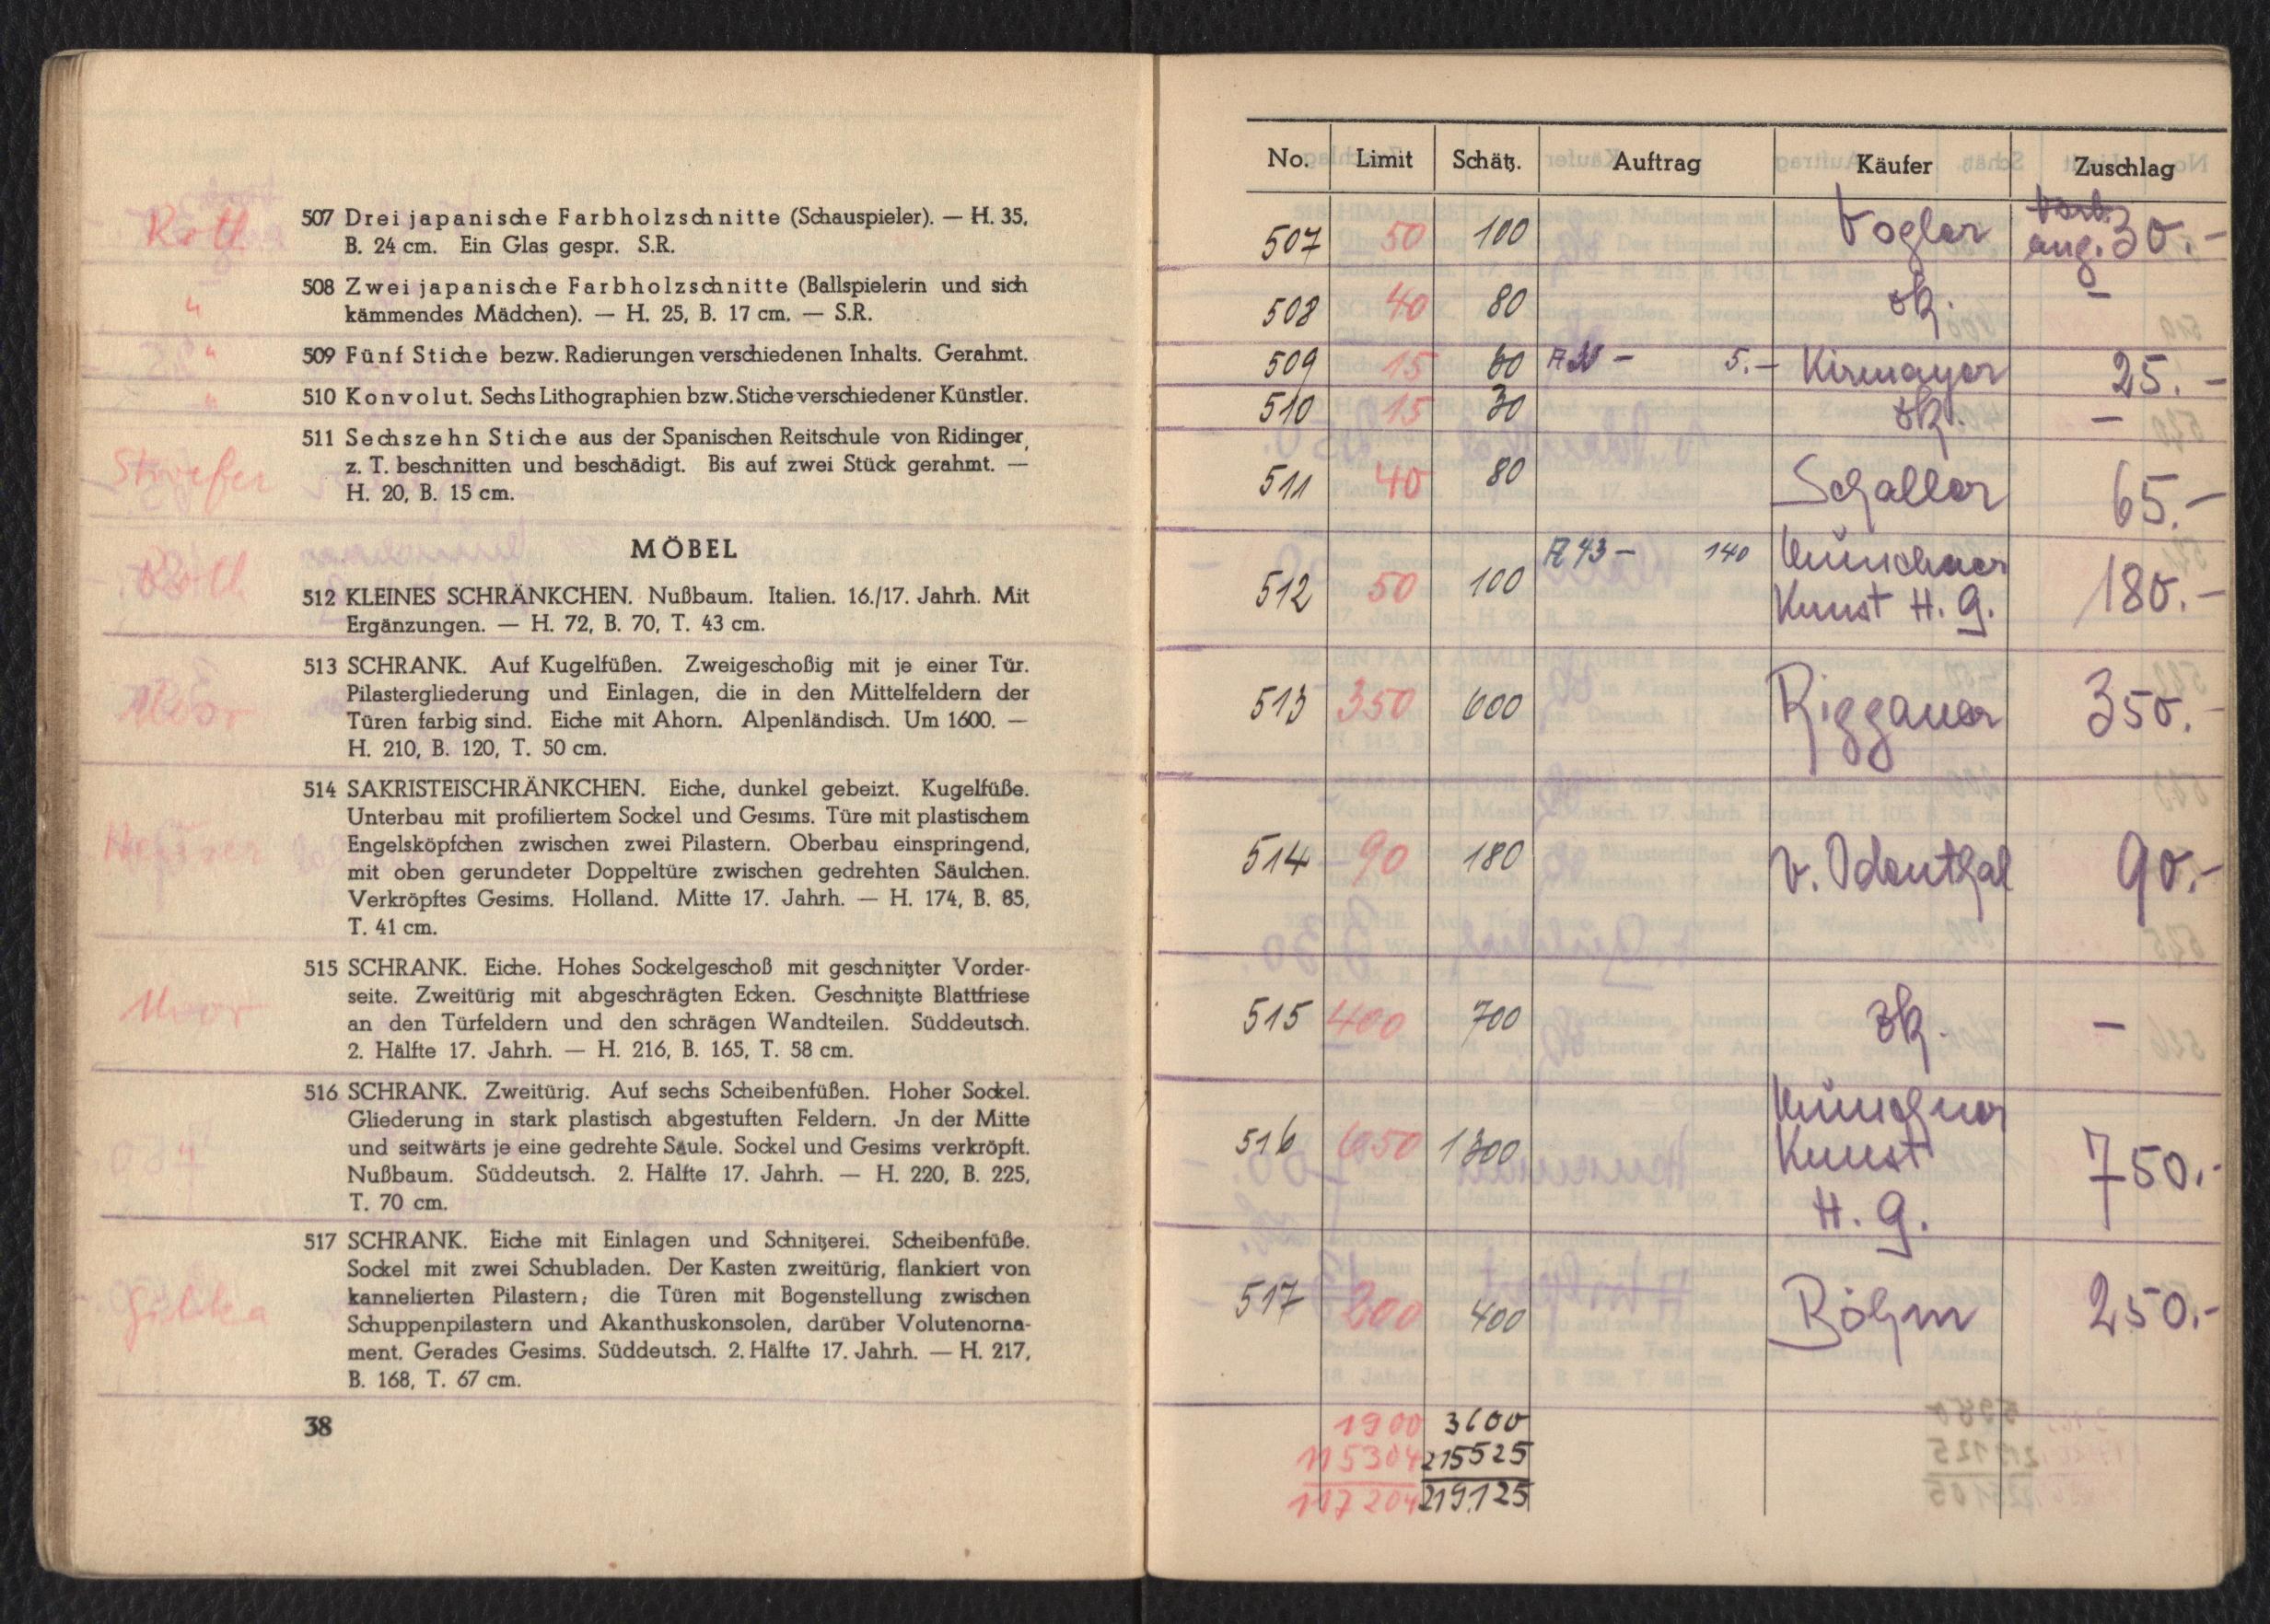 Roth
507 Drei japanische Farbholzschnitte (Schauspieler). — H. 35,
B. 24 cm. Ein Glas gespr. S.R.
"
508 Zwei japanische Farbholzschnitte (Ballspielerin und sich
kämmendes Mädchen). — H. 25, B. 17 cm. — S.R.
"
509 Fünf Stiche bezw. Radierungen verschiedenen Inhalts. Gerahmt.
"
510 Konvolut. Sechs Lithographien bzw. Stiche verschiedener Künstler.
511 Sechszehn Stiche aus der Spanischen Reitschule von Ridinger,
z. T. beschnitten und beschädigt. Bis auf zwei Stück gerahmt. —
H. 20, B. 15 cm.
MÖBEL
Roth
512 KLEINES SCHRÄNKCHEN. Nußbaum. Italien. 16./17. Jahrh. Mit
Ergänzungen. — H. 72, B. 70, T. 43 cm.
513 SCHRANK. Auf Kugelfüßen. Zweigeschoßig mit je einer Tür.
Pilastergliederung und Einlagen, die in den Mittelfeldern der
Türen farbig sind. Eiche mit Ahorn. Alpenländisch. Um 1600. —
H. 210, B. 120, T. 50 cm.
514 SAKRISTEISCHRÄNKCHEN. Eiche, dunkel gebeizt. Kugelfüße.
Unterbau mit profiliertem Sockel und Gesims. Türe mit plastischem
Engelsköpfchen zwischen zwei Pilastern. Oberbau einspringend,
mit oben gerundeter Doppeltüre zwischen gedrehten Säulchen.
Verkröpftes Gesims. Holland. Mitte 17. Jahrh. — H. 174, B. 85,
T. 41 cm.
515 SCHRANK. Eiche. Hohes Sockelgeschoß mit geschnitzter Vorder-
seite. Zweitürig mit abgeschrägten Ecken. Geschnitzte Blattfriese
an den Türfeldern und den schrägen Wandteilen. Süddeutsch.
2. Hälfte 17. Jahrh. — H. 216, B. 165, T. 58 cm.
516 SCHRANK. Zweitürig. Auf sechs Scheibenfüßen. Hoher Sockel.
Gliederung in stark plastisch abgestuften Feldern. Jn der Mitte
und seitwärts je eine gedrehte Säule. Sockel und Gesims verkröpft.
Nußbaum. Süddeutsch. 2. Hälfte 17. Jahrh. — H. 220, B. 225,
T. 70 cm.
517 SCHRANK. Eiche mit Einlagen und Schnitzerei. Scheibenfüße.
Sockel mit zwei Schubladen. Der Kasten zweitürig, flankiert von
kannelierten Pilastern; die Türen mit Bogenstellung zwischen
Schuppenpilastern und Akanthuskonsolen, darüber Volutenorna-
ment. Gerades Gesims. Süddeutsch. 2. Hälfte 17. Jahrh. — H. 217,
B. 168, T. 67 cm.
38
No. Limit Schätz. Auftrag Käufer Zuschlag
507 50 100 Vogler 30.-
508 40 80 zk. -
509 15 30 5.- Kirmayer 25.-
510 15 30 zk. -
511 40 80 Schaller 65.-
512 50 100 A 43 - 140 Münchner
Kunst H. G. 180.-
513 350 600 Rigganer 350.-
514 90 180 v. Odenthal 90.-
515 400 700 zk. -
516 650 1300 Münchner
Kunst 750.-
H. G.
517 200 400 Böhm 250.-
1900 3600
115304 215525
117204 219125